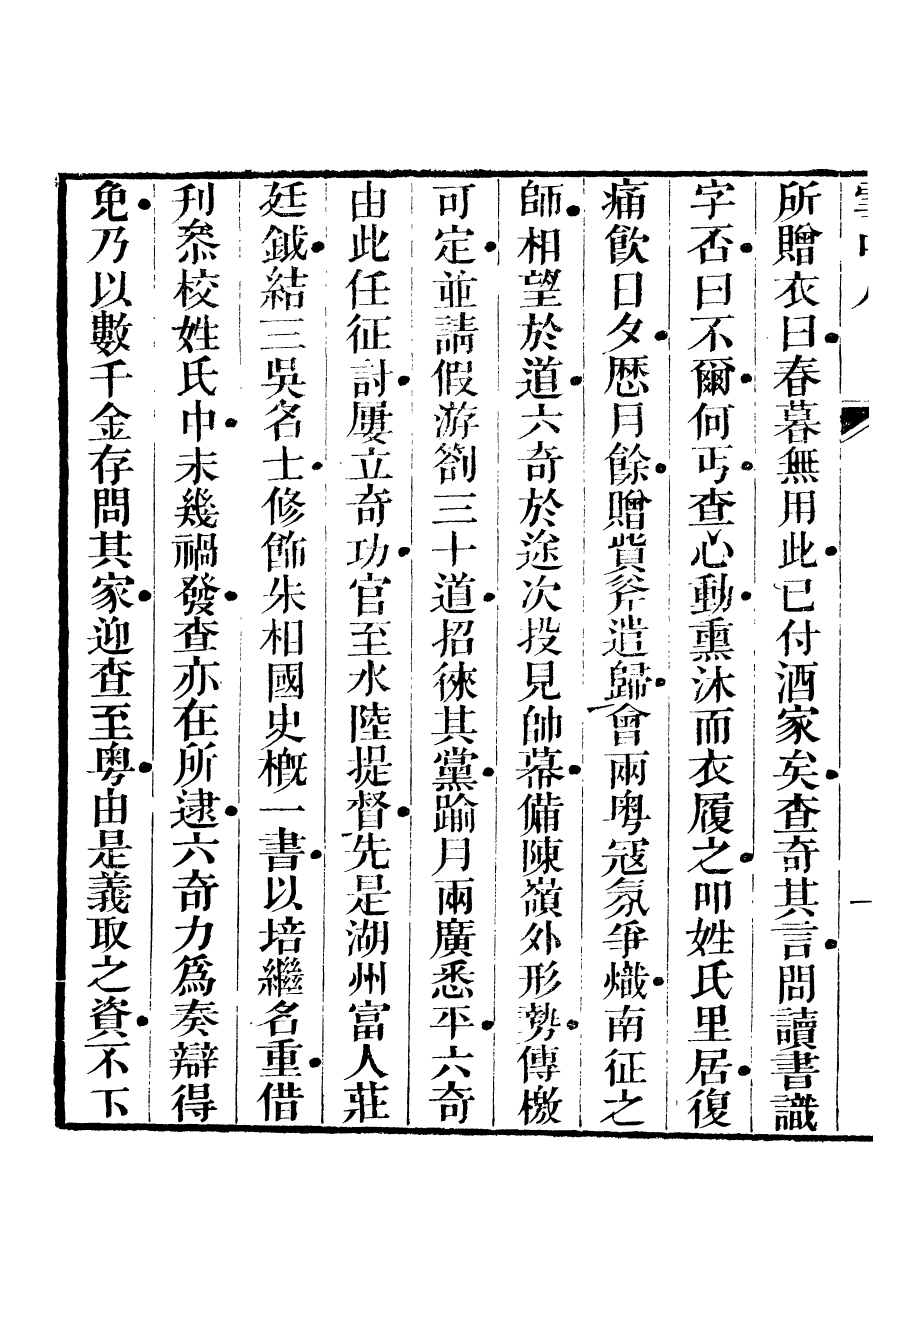 所贈衣曰春暮無用此已付酒家矣查奇其言問讀書識
字否曰不爾何丐查心動熏沐而衣履之叩姓氏里居復
痛飲日夕歷月餘贈貲斧遣歸會兩粵寇氛爭熾南征之
師相望於道六奇於途次投見帥幕備陳嶺外形勢傳檄
可定並請假游劄三十道招徠其黨踰月兩廣悉平六奇
由此任征討屢立奇功官至水陸提督先是湖州富人莊
廷鉞結三吳名士修飾朱相國史槪一書以培繼名重借
刊叅校姓氏中未幾禍發查亦在所逮六奇力爲奏辯得
免乃以數千金存問其家迎查至粵由是義取之資不下